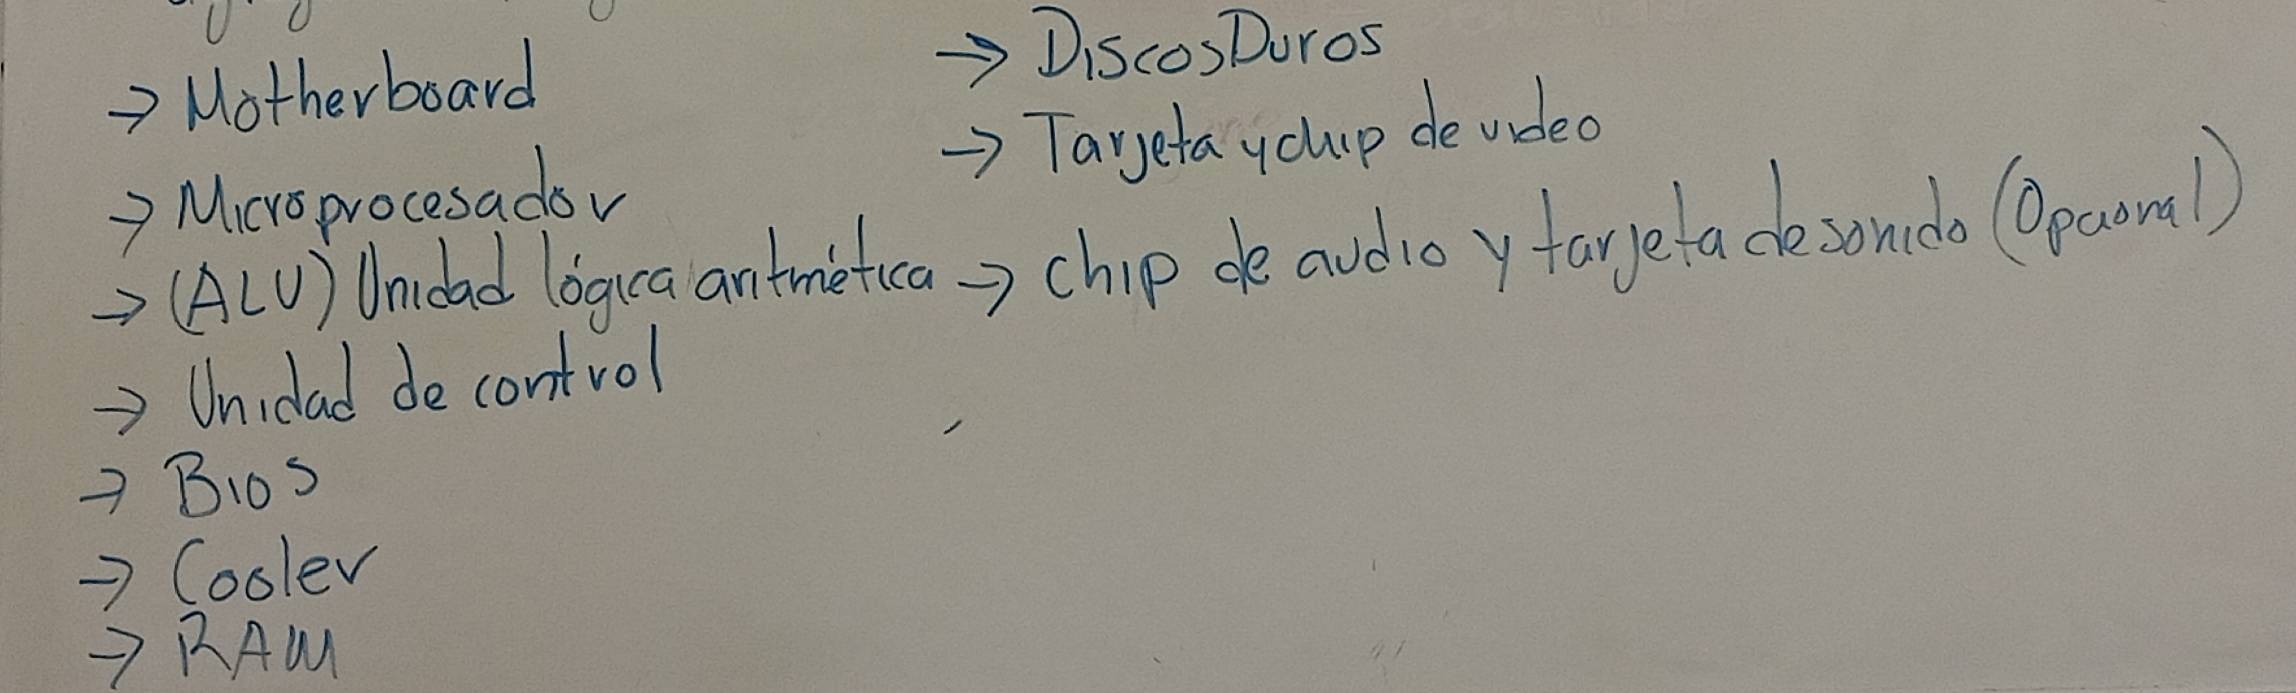 → Motherboard
→ Microprocesador
→ (ALU) Unidad lógica aritmética
→ Unidad de control
→ Bios
→ Cooler
→ RAM
→ Discos Duros
→ Tarjeta y chip de video
→ chip de audio y tarjeta de sonido (Opcional)